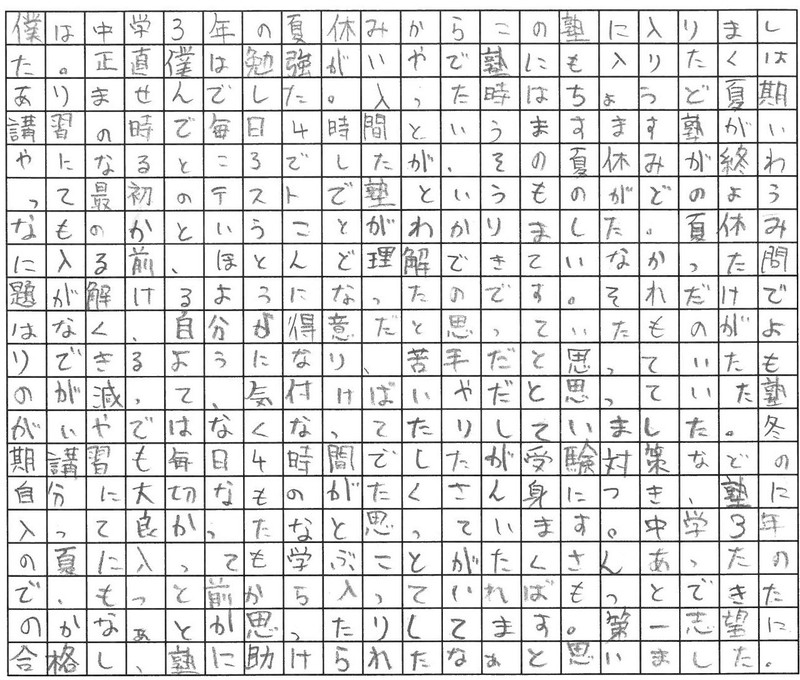 僕は中学3年の夏休みからこの塾に入りまし
た。正直僕は勉強がいやで塾にも入りたくは
ありませんでした。入った時はちょうど夏期
講習の時で毎日4時間というますます塾がい
やになるところでしたが、その夏休みが終わ
って最初のテストで塾というものがどのよう
なものかということがわかりました。夏休み
に入る前、ほとんど理解できていなかった問
題が解けるようになったのです。それだけで
はなく、自分が得意だと思っていたものがよ
りできるようになり、苦手だと思っていたも
のが減って、気付けばいやだと思っていた塾
がいやではなくなってたりしていました。冬
期講習も毎日4時間でしたが受験対策などの
自分に大切なものがたくさん身につき、塾に
入って良かったなと思っています。中学3年
の夏に入っても学ぶことがたくさんあったの
で、もっと前から入っていればもっとできた
のかなぁとか思ったりしてます。第一志望に
合格し、塾に助けられたなぁと思いました。